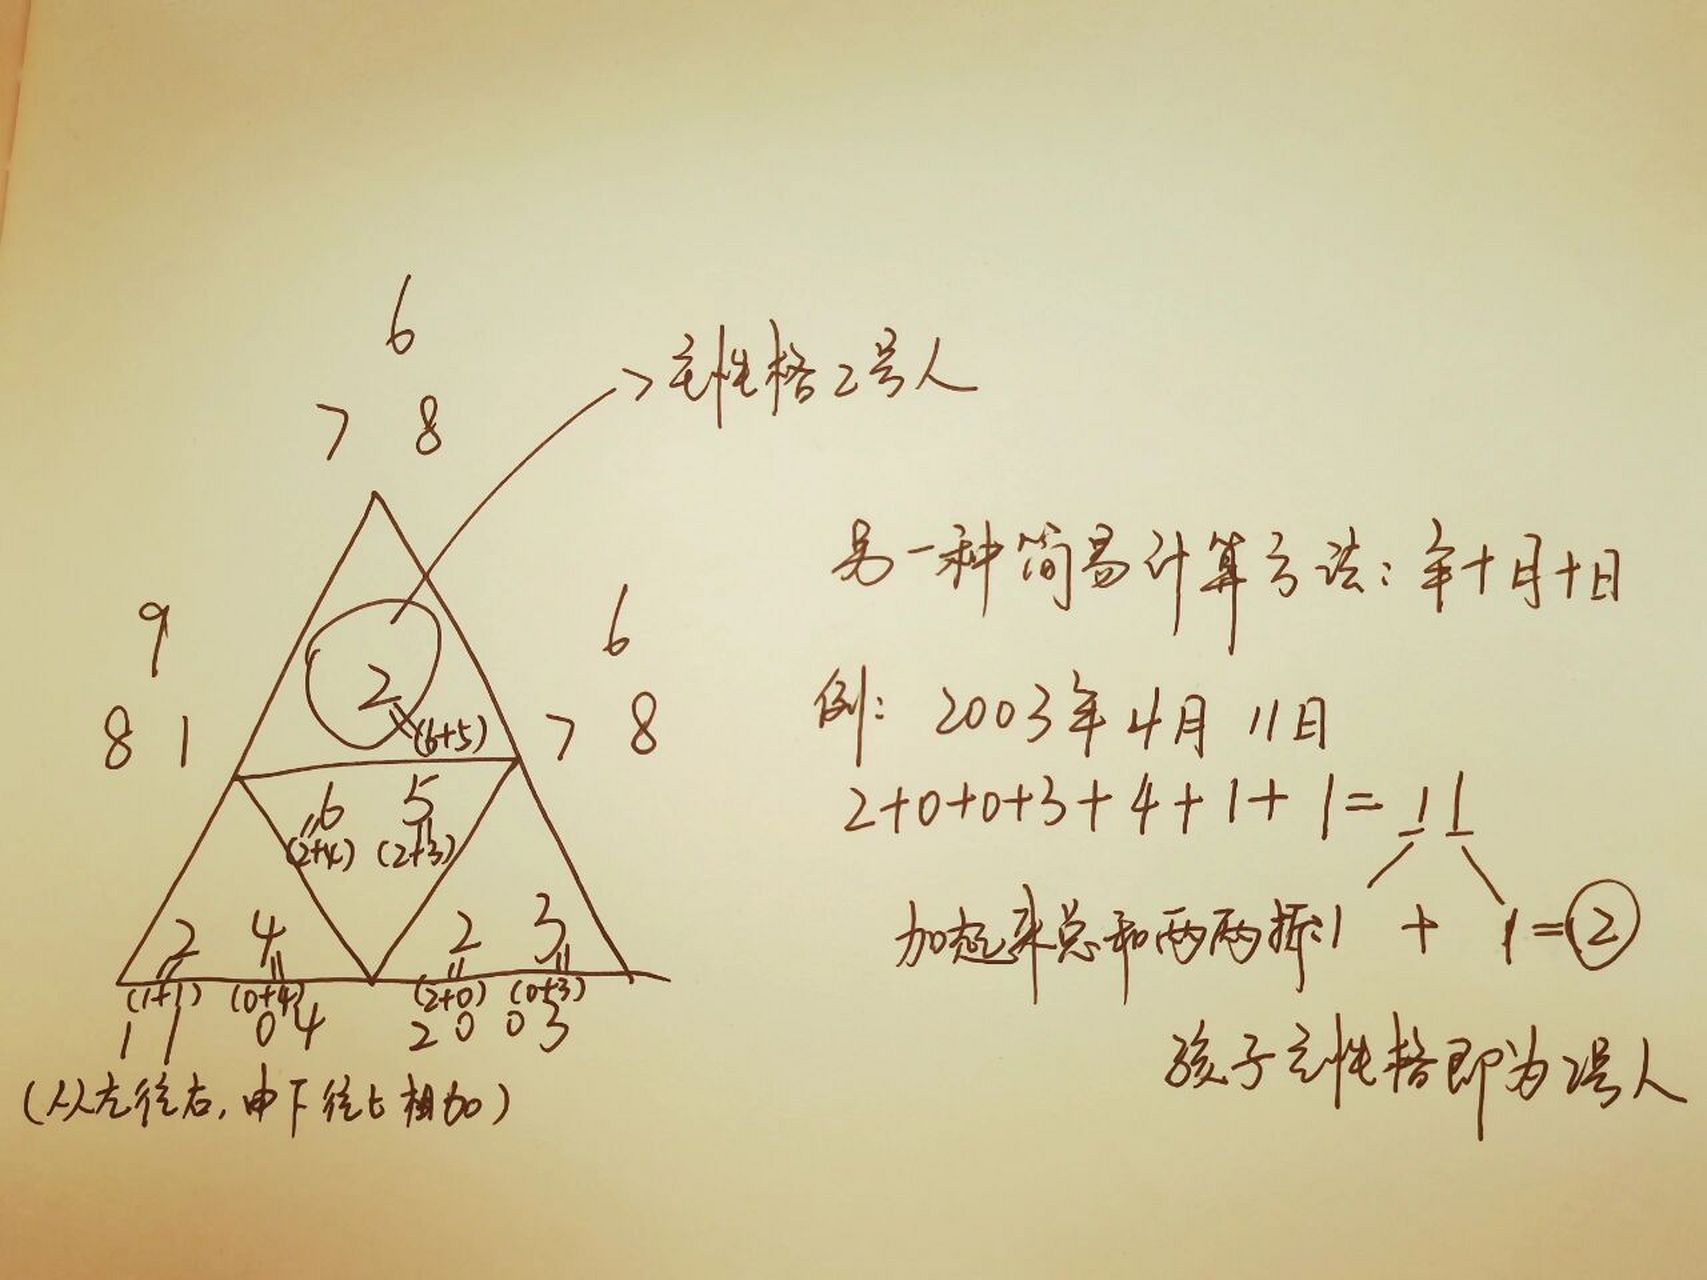 6
7 8
主性格2号人
9
8 1
6
7 8
2
(6+5)
6 5
(2+4) (2+3)
2 4 2 3
(1+1) (0+4) (2+0) (0+3)
1 1 0 4 2 0 0 3
(从左往右,由下往上相加)
另一种简易计算方法:年+月+日
例: 2003年4月11日
2+0+0+3+4+1+1=11
加起来总和两两拆:1 + 1=2
孩子主性格即为2号人